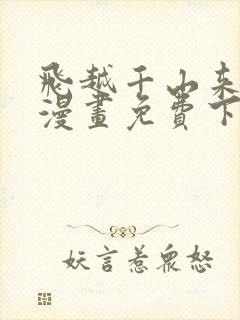 飛越千山來
漫畫免費下
妖言惹眾怒